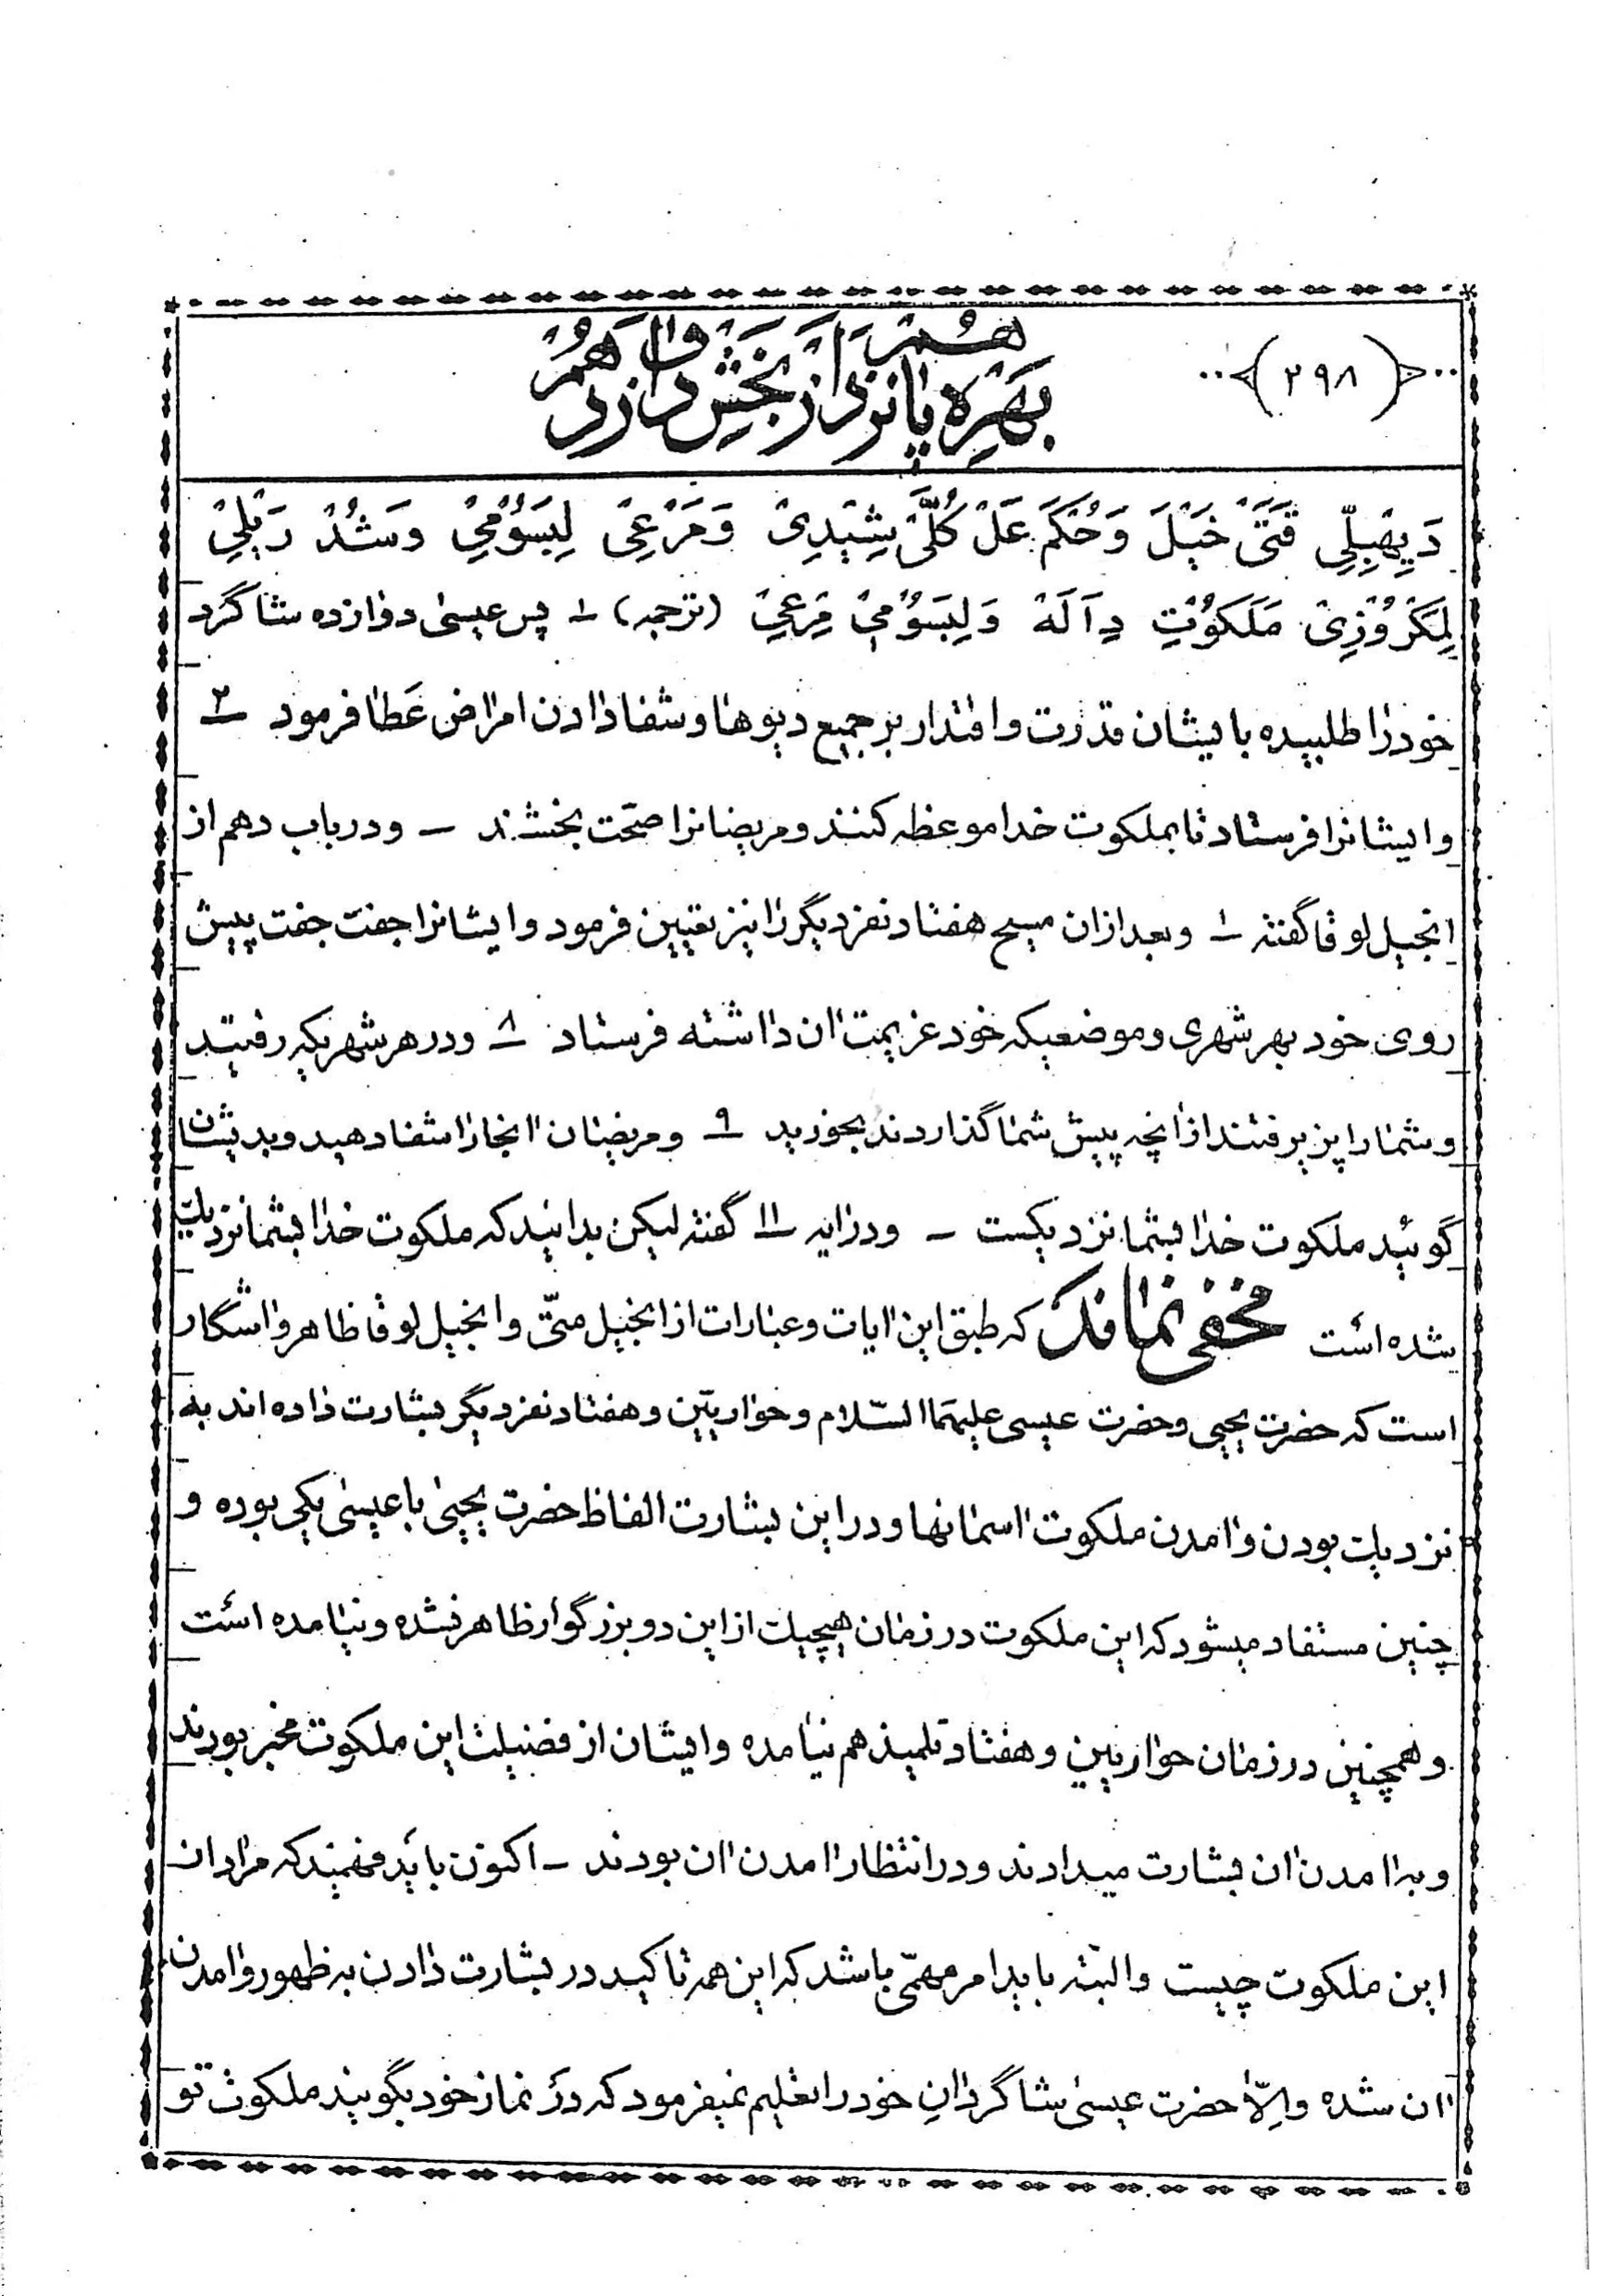 ﴿۲۹۸﴾
بهره پانزدهم از بخش دوازدهم
دَیِهِبِلّیِ قَتَیَ خَیَلَ وَحُکَمَ عَلْ کُلَّیْ شِیَدِیْ وَمَرْعِیْ لِیَسَوُمِیْ وسَشُدْ رَیْلِیْ
لِمَکْرُوْزِیْ مَلَکوُتِ دِآلَهْ وَلِیَسَوُمِیْ مَرِعِیْ (ترجمه) ۱ پس عیسی دوازده شاگرد
خود را طلبیده بایشان قدرت و اقتدار بر جمیع دیوها و شفا دادن امراض عَطا فرمود ۲
و ایشانرا فرستاد تا بملکوت خدا موعظه کنند و مریضانرا صحّت بخشند – و در باب دهم از
انجیل لوقا گفته ۱ و بعد از ان مسیح هفتاد نفر دیگر را نیز تعیین فرمود و ایشانرا جفت جفت پیش
روی خود بهر شهری و موضعیکه خود عزیمت اان داشته فرستاد ۸ و در هر شهریکه رفتید
و شما را پزیرفتند از انچه پیش شما گذاردند بخورید ۹ و مریضان اانجا را شفا دهید و بدیشان
گوئید ملکوت خدا بشما نزدیکست – و در ایه ۱۱ گفته لیکن بدانید که ملکوت خدا بشما نزدیک
شده است مخفی نماند که طبق این اایات و عبارات از انجیل متّی و انجیل لوقا ظاهر و ااشکار
است که حضرت یحیی و حضرت عیسی علیهما السّلام و حواریّین و هفتاد نفر دیگر بشارت داده اند به
نزدیک بودن و اامدن ملکوت ااسمانها و در این بشارت الفاظ حضرت یحیی با عیسی یکی بوده و
چنین مستفاد میشود که این ملکوت در زمان هیچیک از این دو بزرگوار ظاهر نشده و نیامده است
و همچنین در زمان حواریین و هفتاد تلمیذ هم نیامده و ایشان از فضیلت این ملکوت مخبر بودند
و به اامدن اان بشارت میدادند و در انتظار اامدن اان بودند – اکنون باید فهمید که مراد از
این ملکوت چیست و البته باید امر مهمّی باشد که این همه تاکید در بشارت دادن به ظهور و اامدن
اان شده و اِلّا حضرت عیسی شاگردانِ خود را تعلیم نمیفرمود که در نماز خود بگویند ملکوت تو